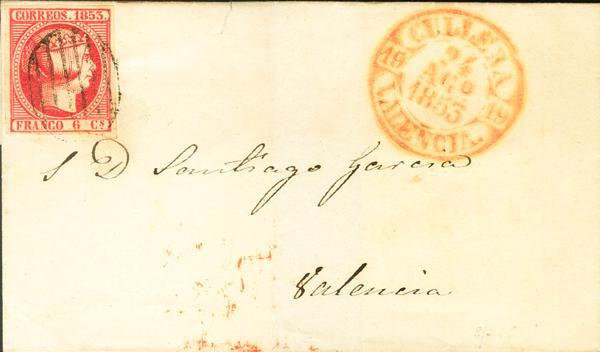 CORREOS. 1853.
FRANCO 6 Cs
CULLERA
24
AGO
1853
19 19
VALENCIA.
S D Santiago Garcia
Valencia